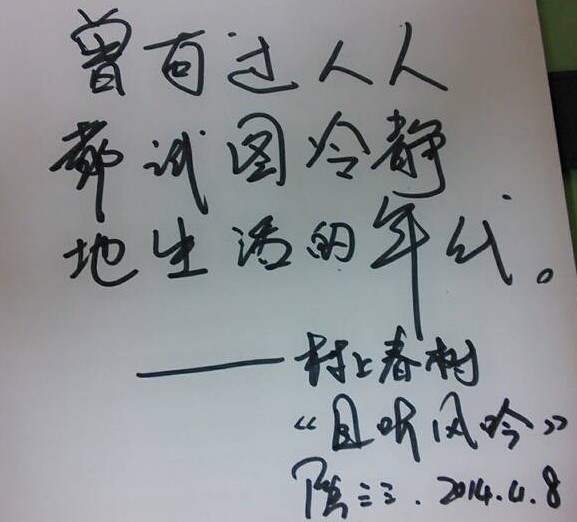 曾有过人人
都试图冷静
地生活的年代。
——村上春树
“且听风吟”
2014.4.8